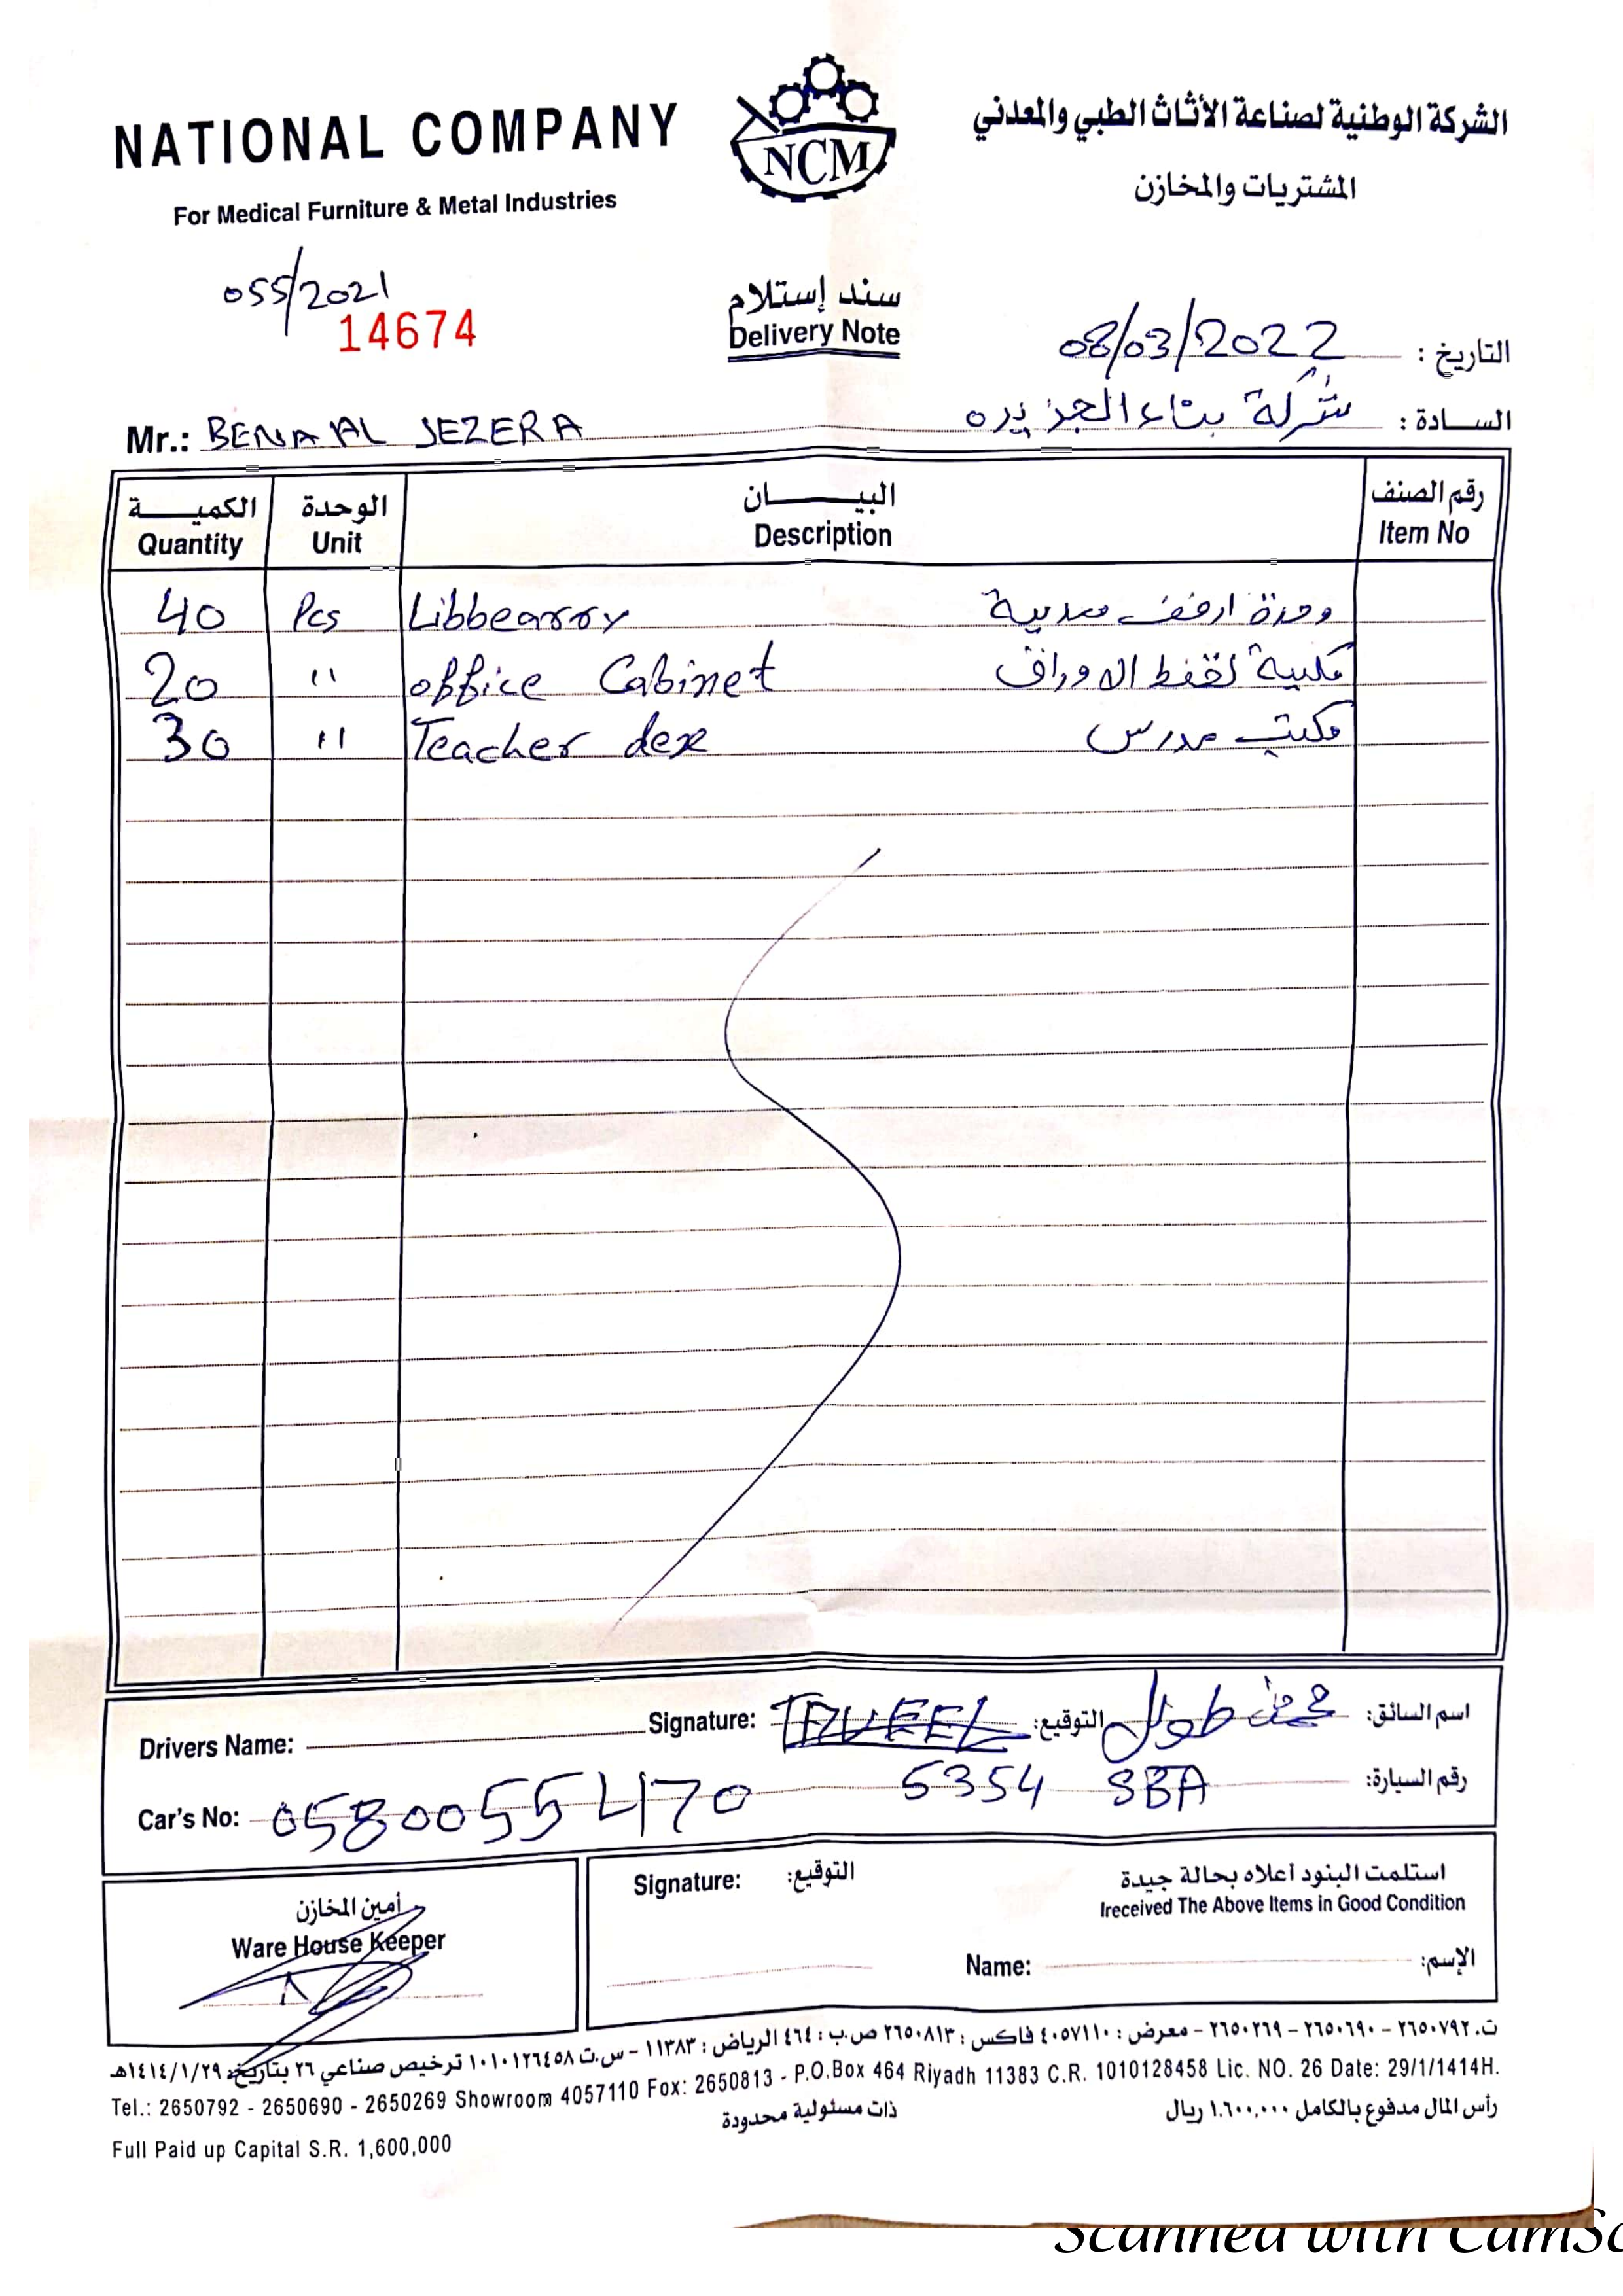 NATIONAL COMPANY
For Medical Furniture & Metal Industries
NCM
الشركة الوطنية لصناعة الأثاث الطبي والمعدني
المشتريات والمخازن
055/2021
14674
سند إستلام
Delivery Note
التاريخ : 08/03/2022
Mr.: BENA AL JEZERA
السادة : شركة بناء الجزيره
الكمية الوحدة البيان رقم الصنف
Quantity Unit Description Item No
40 Pcs Libbearry وحدة ارفف معدنية
20 " office Cabinet مكتبية لحفظ الاوراق
30 " Teacher dex مكتب مدرس
Drivers Name: Signature: TAUEEL التوقيع: اسم السائق:
Car's No: 0580055470 5354 SBA رقم السيارة:
أمين المخازن
Ware House Keeper
Signature: التوقيع:
استلمت البنود أعلاه بحالة جيدة
Ireceived The Above Items in Good Condition
Name: الإسم:
ت. ٢٦٥٠٧٩٢ - ٢٦٥٠٦٩٠ - ٢٦٥٠٢٦٩ - معرض : ٤٠٥٧١١٠ فاكس : ٢٦٥٠٨١٣ ص.ب : ٤٦٤ الرياض : ١١٣٨٣ - س.ت ١٠١٠١٢٦٤٥٨ ترخيص صناعي ٢٦ بتاريخ: ١٤١٤/١/٢٩هـ
Tel.: 2650792 - 2650690 - 2650269 Showroom 4057110 Fox: 2650813 - P.O.Box 464 Riyadh 11383 C.R. 1010128458 Lic. NO. 26 Date: 29/1/1414H.
ذات مسئولية محدودة
رأس المال مدفوع بالكامل ١.٦٠٠,٠٠٠ ريال
Full Paid up Capital S.R. 1,600,000
Scanned with CamSc